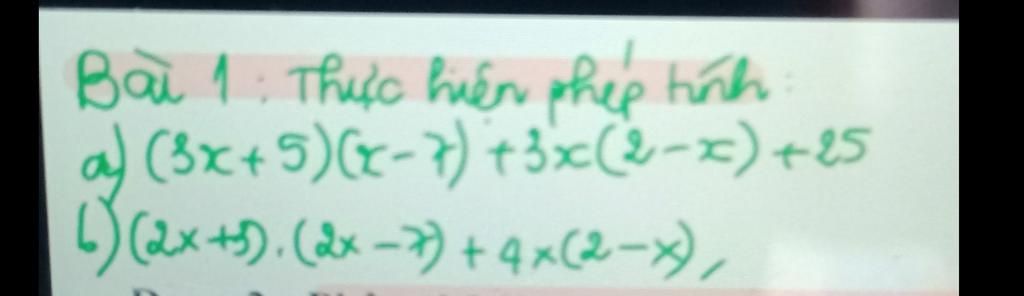 Bài 1: Thực hiện phép tính:
a) (3x+5)(x-7)+3x(2-x)+25
b) (2x+5).(2x-7)+4x(2-x),